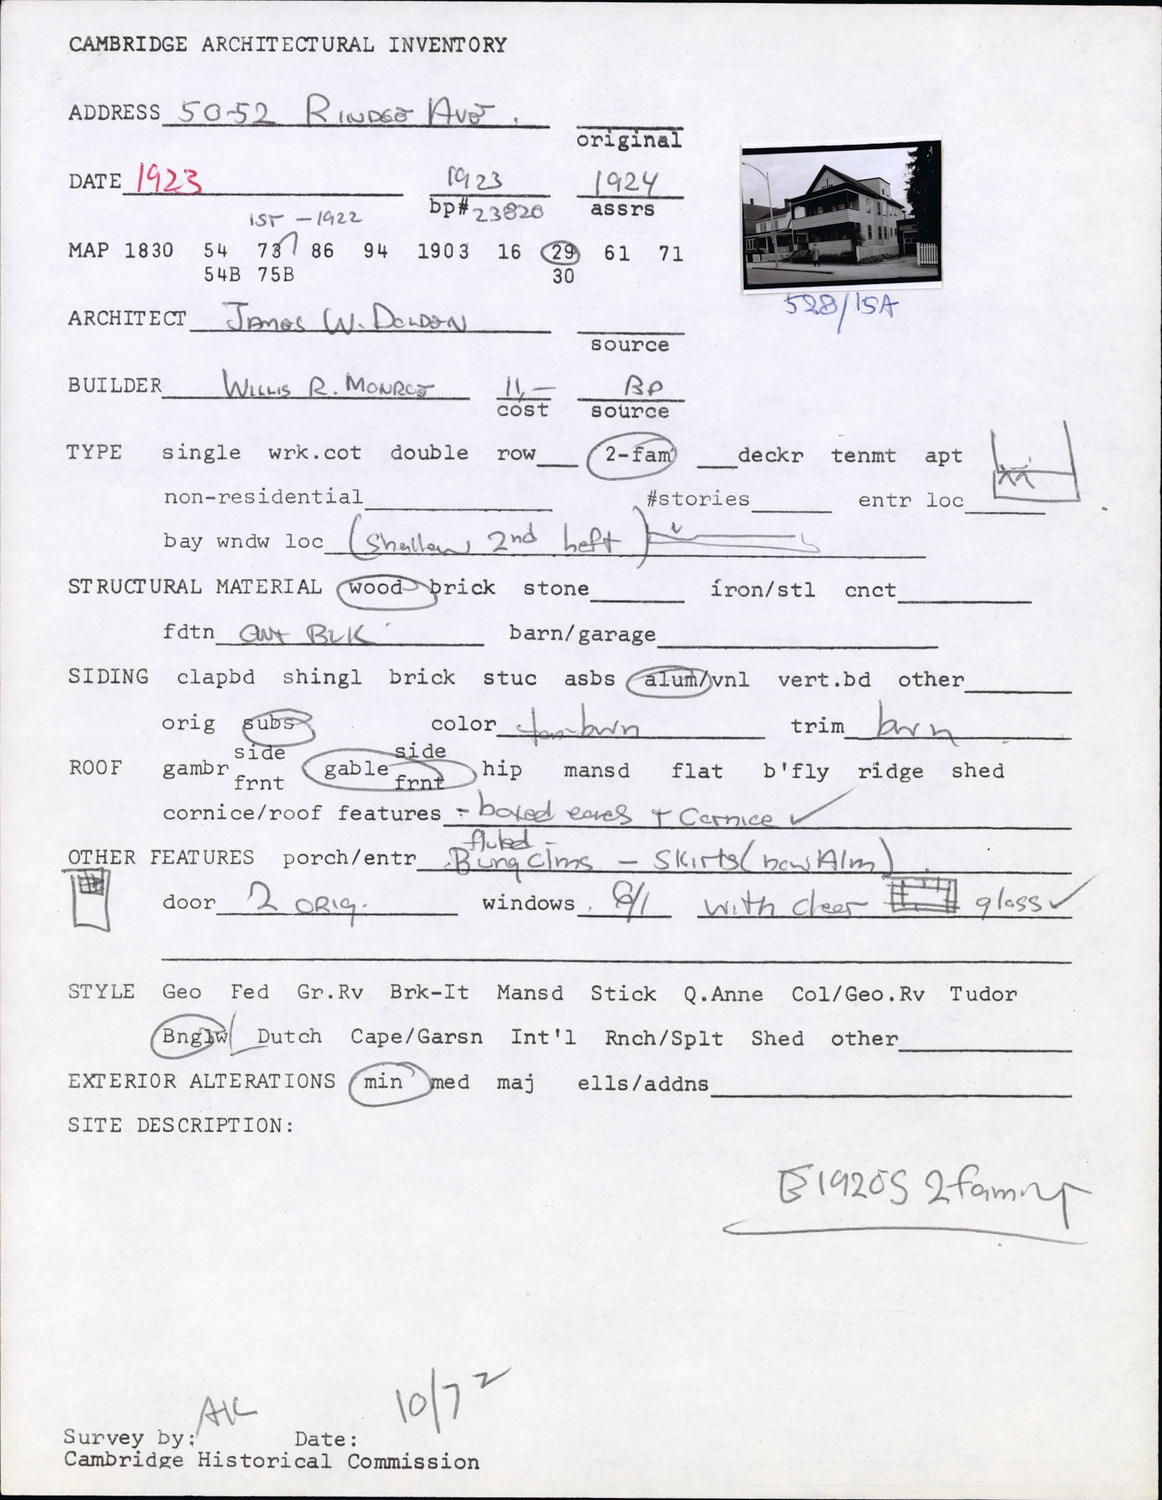 CAMBRIDGE ARCHITECTURAL INVENTORY
ADDRESS 50-52 RINDGE AVE.
original
DATE 1923 1923 1924
bp# 23820 assrs
1ST - 1922
MAP 1830 54 73 86 94 1903 16 29 61 71
54B 75B 30
52B/15A
ARCHITECT JAMES W. DOLDEN
source
BUILDER WILLIS R. MONROE 11,- BP
cost source
TYPE single wrk.cot double row 2-fam deckr tenmt apt
non-residential #stories entr loc
bay wndw loc (Shallow 2nd left)
STRUCTURAL MATERIAL wood brick stone iron/stl cnct
fdtn BLK barn/garage
SIDING clapbd shingl brick stuc asbs alum/vnl vert.bd other
orig subs color tan-brwn trim brwn
side side
ROOF gambr gable hip mansd flat b'fly ridge shed
frnt frnt
cornice/roof features - boxed eaves + Cornice ✓
fluted -
OTHER FEATURES porch/entr Bung clms - Skirts (new Alm)
door 2 ORIG. windows 8/1 with clear glass ✓
STYLE Geo Fed Gr.Rv Brk-It Mansd Stick Q.Anne Col/Geo.Rv Tudor
Bnglw Dutch Cape/Garsn Int'l Rnch/Splt Shed other
EXTERIOR ALTERATIONS min med maj ells/addns
SITE DESCRIPTION:
E 1920s 2 family
AK 10/72
Survey by: Date:
Cambridge Historical Commission